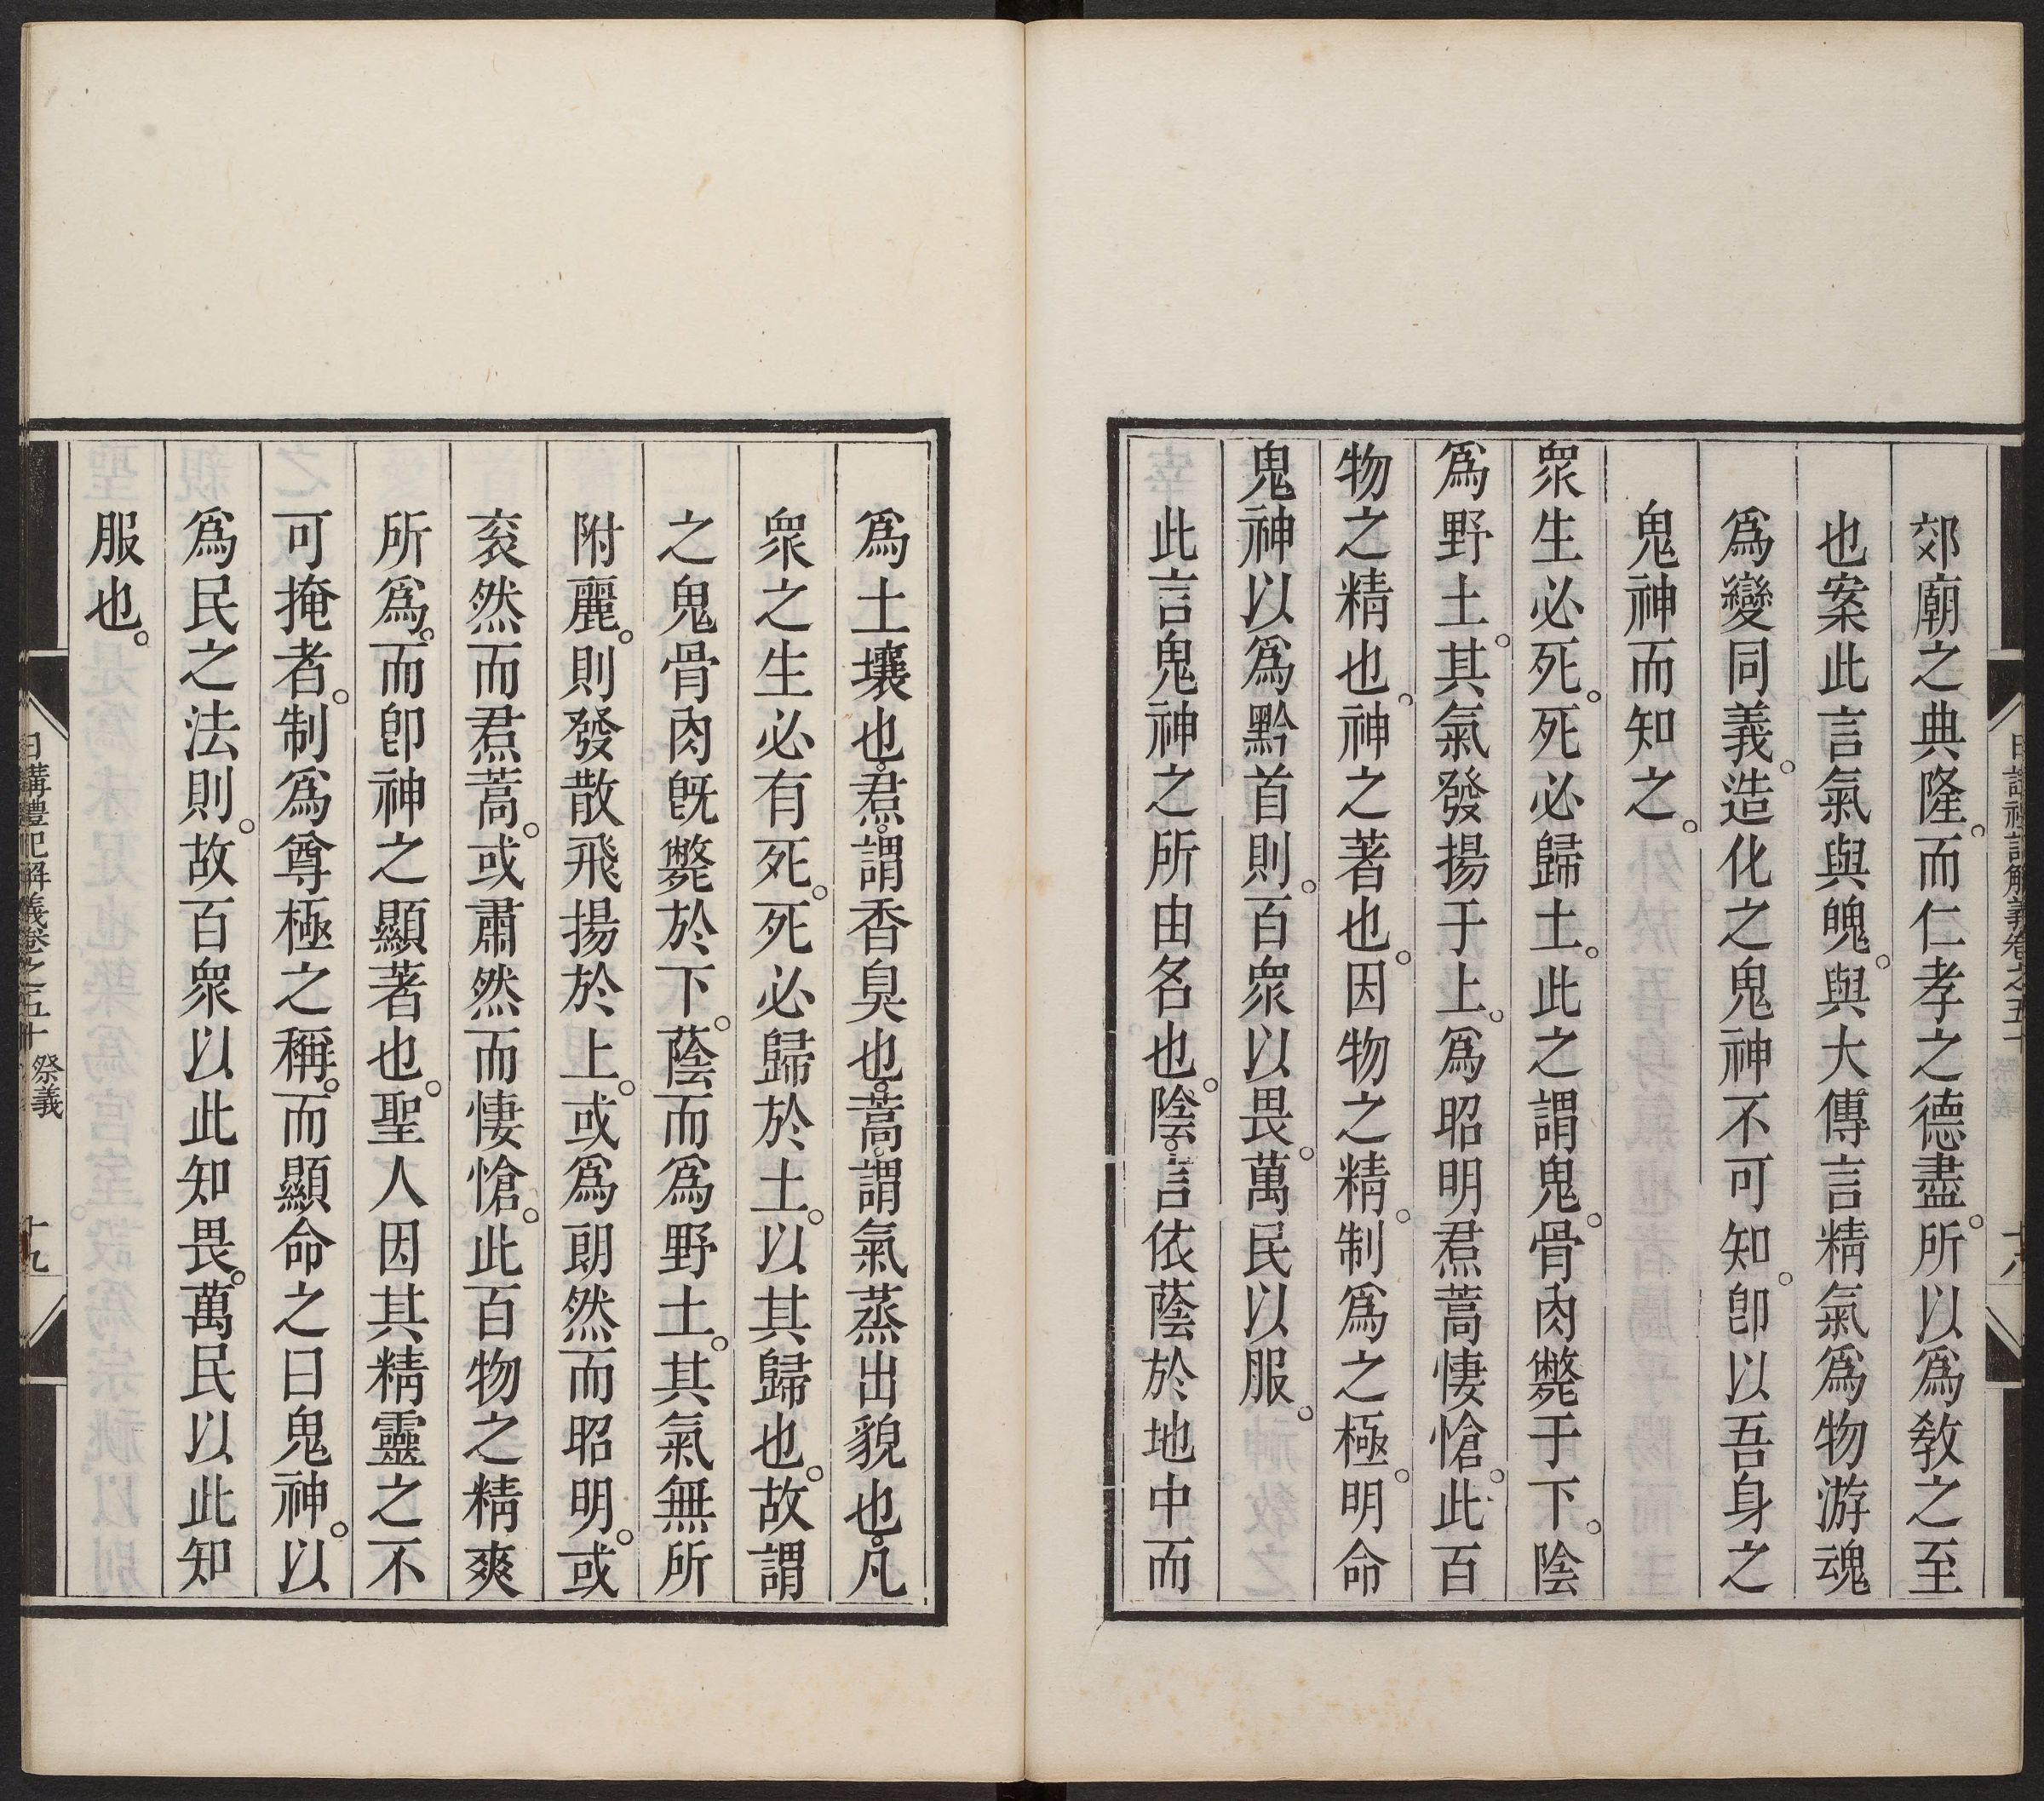 郊廟之典隆。而仁孝之德盡。所以爲敎之至
也案此言氣與魄。與大傳言精氣爲物游魂
爲變同義。造化之鬼神不可知。卽以吾身之
鬼神而知之。
衆生必死。死必歸土。此之謂鬼。骨肉斃于下。陰
爲野土。其氣發揚于上。爲昭明焄蒿悽愴。此百
物之精也。神之著也。因物之精。制爲之極。明命
鬼神以爲黔首則。百衆以畏。萬民以服。
此言鬼神之所由名也。陰。言依蔭於地中而
爲土壤也。焄。謂香臭也。蒿。謂氣蒸出貌也。凡
衆之生必有死。死必歸於土。以其歸也。故謂
之鬼骨肉旣斃於下。蔭而爲野土。其氣無所
附麗。則發散飛揚於上。或爲朗然而昭明。或
衮然而焄蒿。或肅然而悽愴。此百物之精爽
所爲。而卽神之顯著也。聖人因其精靈之不
可掩者。制爲尊極之稱。而顯命之曰鬼神。以
爲民之法則。故百衆以此知畏。萬民以此知
服也。
日講禮記解義卷之五十 祭義 十九